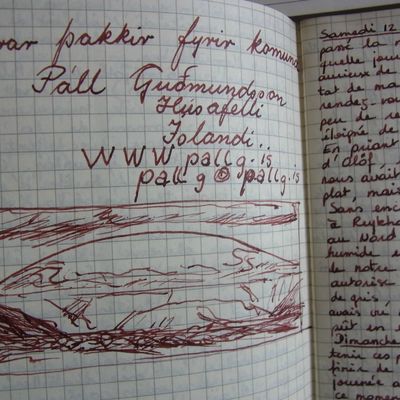 rar þakkir fyrir komuna
Páll Guðmundsson
Húsafelli
Íslandi..
WWW pallg.is
pallg @ pallg.is
Samedi 12
passé la n
quelle jour
curieux de
tat de ma
rendez-vou
peu de re
éloigné de
En priant
d'Olöf,
nous avait
plat, mais
Sans enc
à Reykho
au Nord
humide e
le notre
autorise
de
avais vu
pût en
Dimanche
tenir ces p
finir de
journée a
ce momen